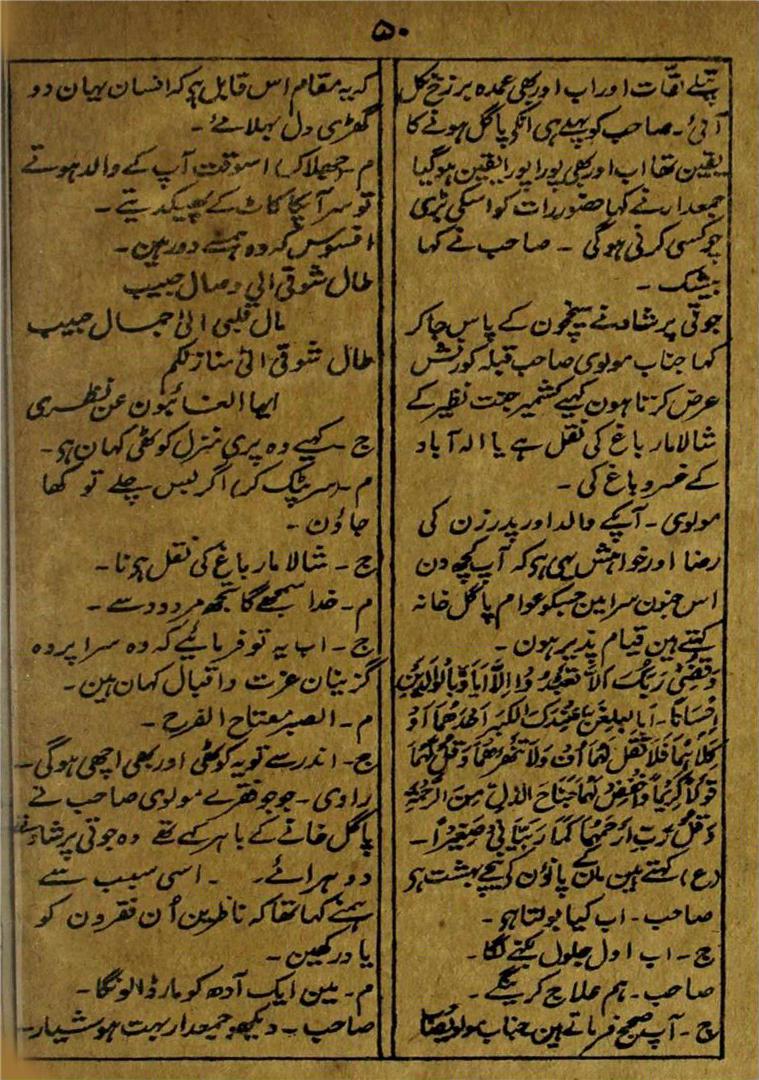 ۵۰
پہلے لقات اور اب اور بھی عمدہ برزخ نکل
آئی۔ صاحب کو پہلے ہی انکی پاگل ہونے کا
یقین تھا اب اور بھی پورا پورا یقین ہوگیا
جمعدار نے کہا حضور رات کو اسکی بڑی
چوکسی کرنی ہوگی ۔ صاحب نے کہا
بیشک ۔
جوتی پرشاد نے پیخچون کے پاس جا کر
کہا جناب مولوی صاحب قبلہ کورنش
عرض کرتا ہون کہیے کشمیر جنت نظیر کے
شالامار باغ کی نقل ہے یا الہ آباد
کے خسرو باغ کی ۔
مولوی ۔ آپکے والد اور پدر زن کی
رضا اور خواہش یہی ہو کہ آپ کچھ دن
اس جنون سرا مین جسکو عوام پاگل خانہ
کہتے ہین قیام پذیر ہون ۔
وَقَضٰی رَبُّکَ اَلَّا تَعْبُدُوا اِلَّا اِیَّاہُ وَبِالْوَالِدَیْنِ
اِحْسَانًا ۔ اِمَّا یَبْلُغَنَّ عِنْدَکَ الْکِبَرَ اَحَدُہُمَا اَوْ
کِلَاہُمَا فَلَا تَقُلْ لَہُمَا اُفٍّ وَلَا تَنْہَرْہُمَا وَقُلْ لَہُمَا
قَوْلًا کَرِیْمًا وَاخْفِضْ لَہُمَا جَنَاحَ الذُّلِّ مِنَ الرَّحْمَۃِ
وَقُلْ رَبِّ ارْحَمْہُمَا کَمَا رَبَّیَانِی صَغِیْرًا ۔
(ع) کہتے ہین مان کے پاؤن کے نیچے بہشت ہو
صاحب ۔ اب کیا بولتا ہو ۔
ج ۔ اب اول جلول بکنے لگا ۔
صاحب ۔ ہم علاج کرینگے ۔
ج ۔ آپ صحیح فرماتے ہین جناب مولویصاحب
کہ یہ مقام اس قابل ہو کہ انسان یہان دو
گھڑی دل بہلائے ۔
م ۔ (جھلا کر) اسوقت آپ کے والد ہوتے
تو سر آپکا کاٹ کے پھینکدیتے ۔
افسوس کہ وہ ہمسے دور ہین ۔
طال شوقی الیٰ وصال حبیب
مال قلبی الیٰ جمال حبیب
طال شوقی الیٰ منازلکم
ایہا الغائبون عن نظری
ج ۔ کہیے وہ پری منزل کوٹھی کہان ہو ۔
م ۔ (سر پٹک کر) اگر بس چلے تو کھا
جاؤن ۔
ج ۔ شالامار باغ کی نقل ہو نا ۔
م ۔ خدا سمجھے گا تجھ مردود سے ۔
ج ۔ اب یہ تو فرمائیے کہ وہ سراپردہ
گزینان عزت و اقبال کہان ہین ۔
م ۔ الصبر مفتاح الفرح ۔
ج ۔ اندر سے تو یہ کوٹھی اور بھی اچھی ہوگی ۔
راوی ۔ جو جو فقرے مولوی صاحب نے
پاگل خانے کے باہر کہے تھے وہ جوتی پرشاد نے
دوہرائے ۔ اسی سبب سے
ہمنے کہا تھا کہ ناظرین اُن فقرون کو
یاد رکھین ۔
م ۔ مین ایک آدھ کو مار ڈالونگا ۔
صاحب ۔ دیکھو جمعدار بہت ہوشیار ۔